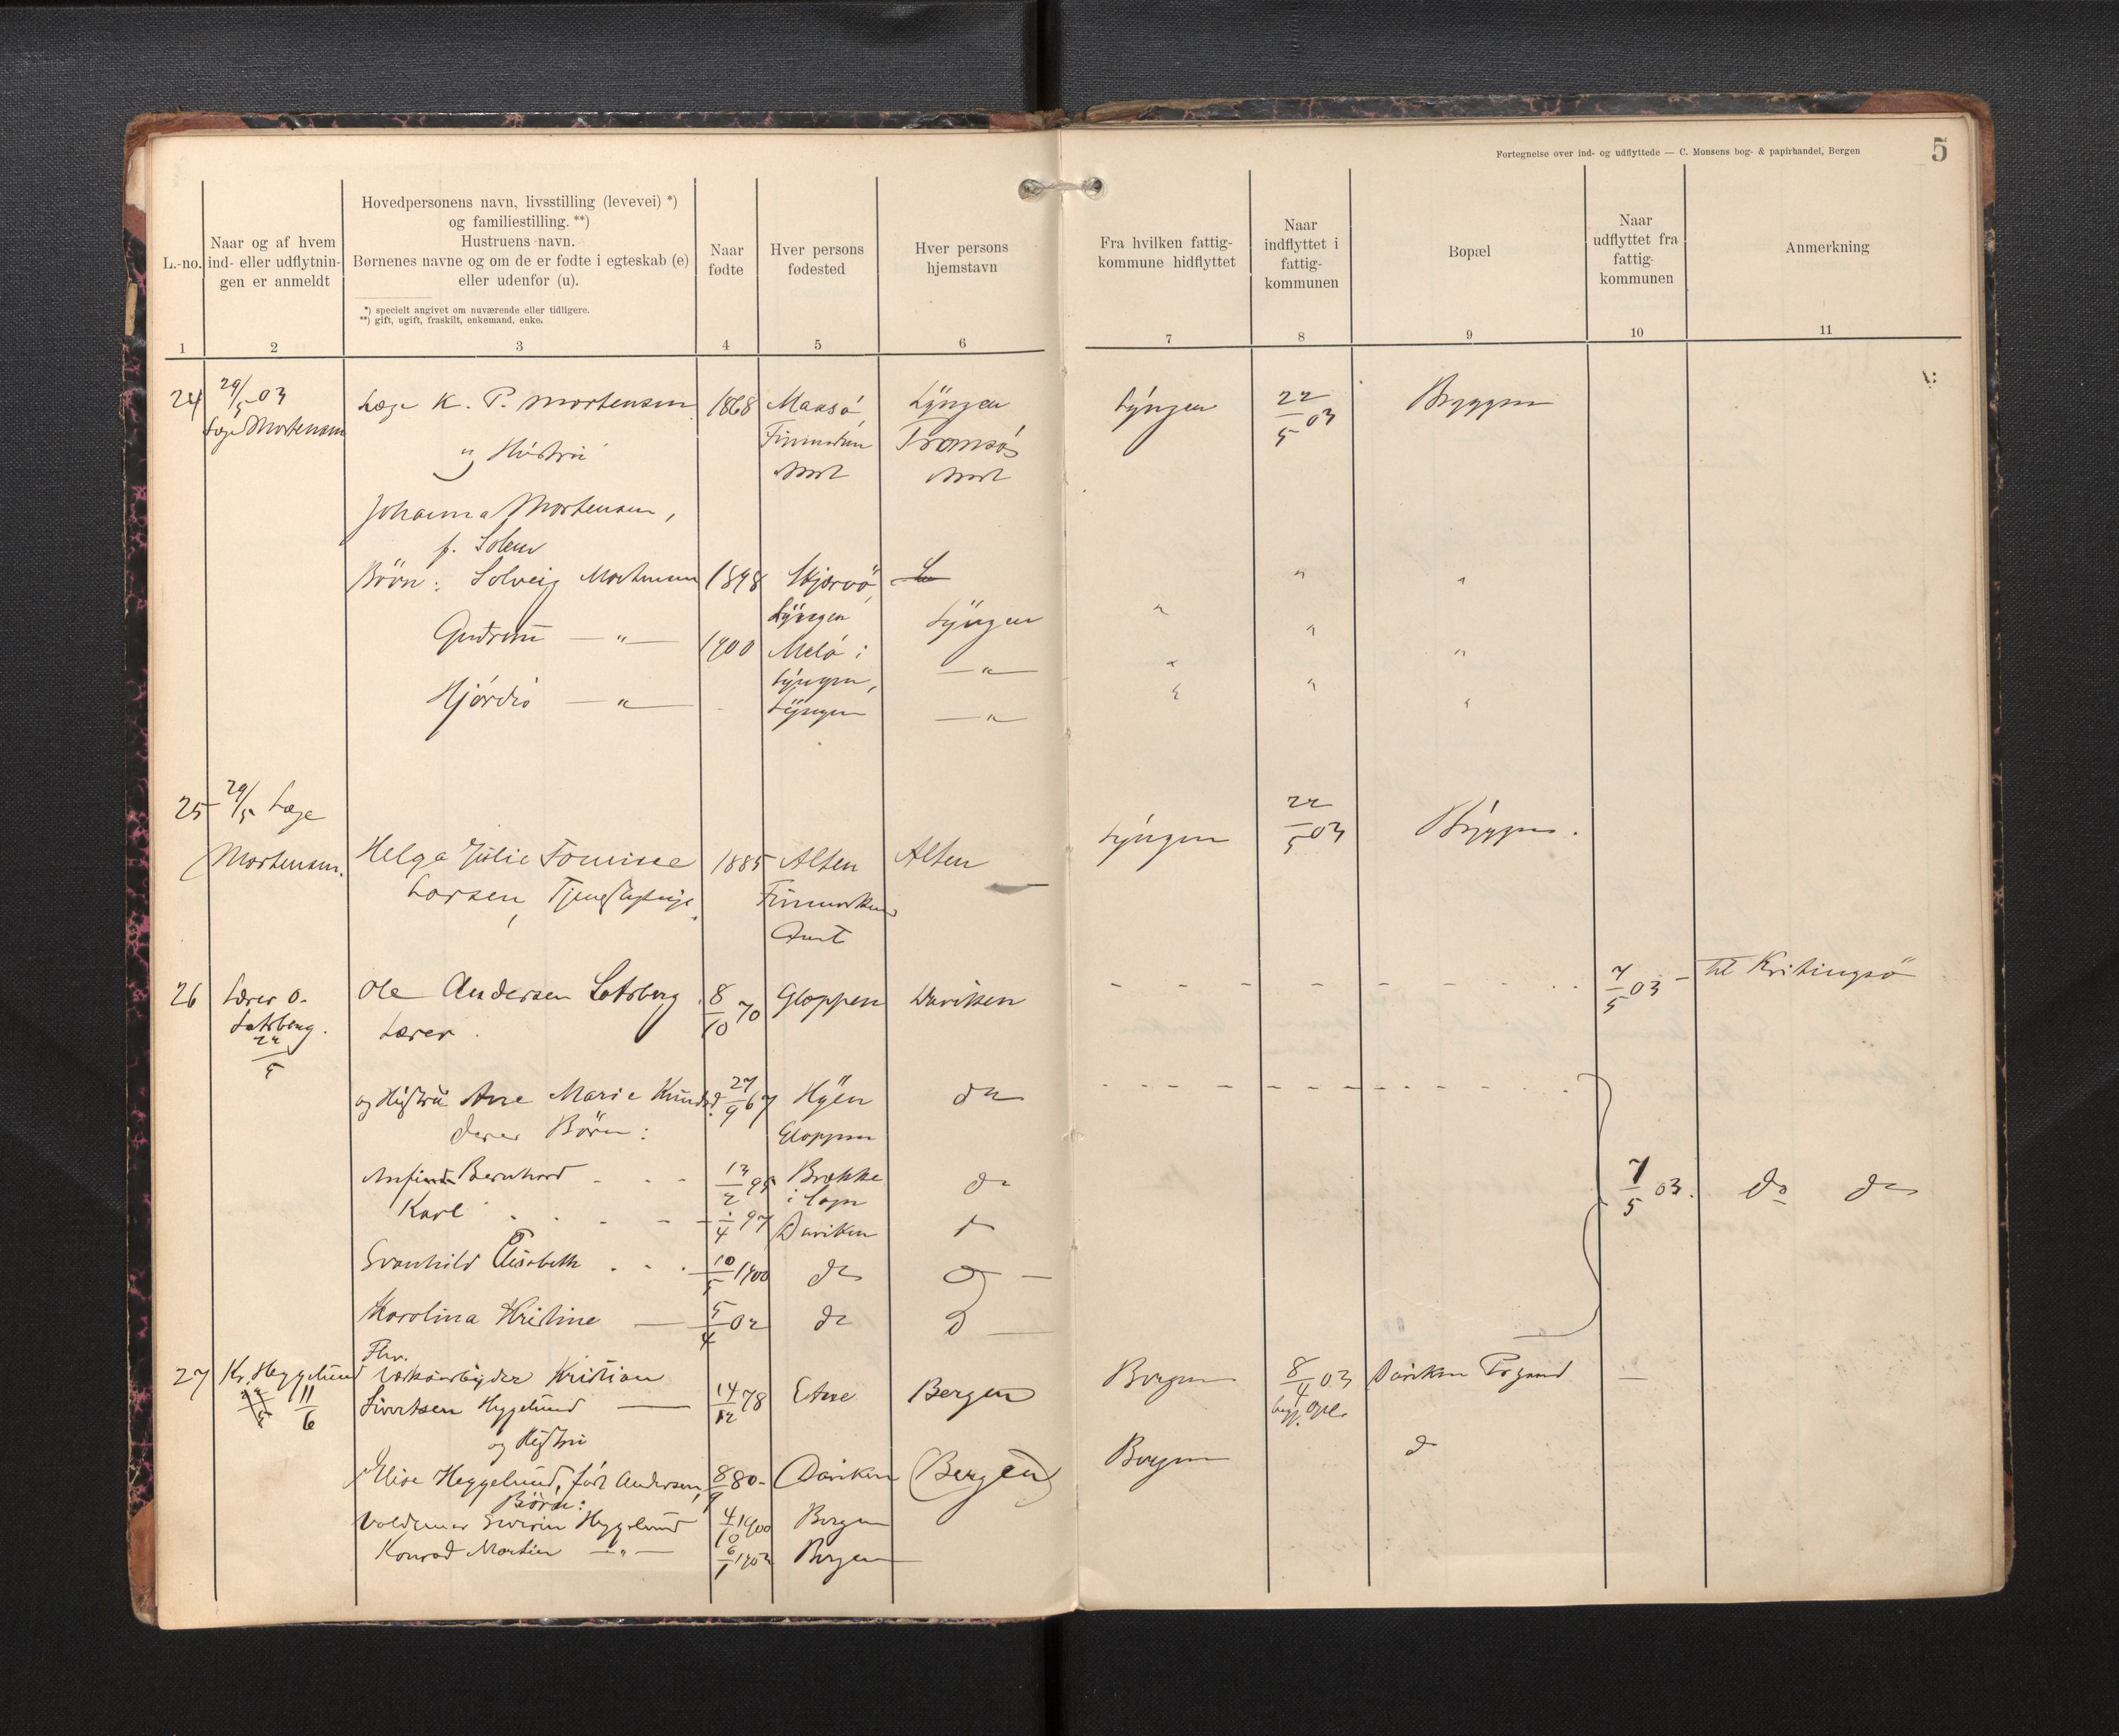 Fortegnelse over ind- og udflyttede — C. Monsens bog- & papirhandel, Bergen
5
L.-no.
Naar og af hvem ind- eller udflytningen er anmeldt
Hovedpersonens navn, livsstilling (levevei) *)
og familiestilling. **)
Hustruens navn.
Børnenes navne og om de er fødte i egteskab (e)
eller udenfor (u).
*) specielt angivet om nuværende eller tidligere.
**) gift, ugift, fraskilt, enkemand, enke.
Naar fødte
Hver persons fødested
Hver persons hjemstavn
Fra hvilken fattigkommune hidflyttet
Naar indflyttet i fattigkommunen
Bopæl
Naar udflyttet fra fattigkommunen
Anmerkning
1 2 3 4 5 6 7 8 9 10 11
24 29/5 03 Læge K. P. Mortensen 1868 Maasö Lyngen Lyngen 22/5 03 Bryggen
Læge Mortensen Tromsös
og Hustru Amt Amt
Johanna Mortensen,
f.
Börn: Solveig Mortensen 1898 Skjervö " "
Lyngen Lyngen "
Gudrun — " — 1900 i " "
Lyngen, — " — "
Hjördis — " — Lyngen — " — " " "
25 29/5 Læge
Mortensen. Helga Julie Tomine 1885 Alten Alten Lyngen 22/5 03 Bryggen.
Larsen, Finmarkens
Amt
26 Lærer O. Ole Andersen Lotsberg 8/10 70 Gloppen Daviken 7/5 03 - til
Lotsberg. Lærer.
22/5
og Hustru Ane Marie 27/9 67 Hyen do
deres Börn: Gloppen
Bernhard 13/2 95 Brække do 7/5 03. do do
i Sogn
Karl 4 97 Daviken d
Svanhild Elisabeth 10/5 1900 do d
Karolina Kristine 5/4 02 do d
27 Kr. Heggelund Fhv. Kristian Bergen 8/4 03 Daviken
22/5 11/6 Sivertsen Heggelund 14/12 78 Etne Bergen
og Hustru
Elise Heggelund, föd Andersen, 8/9 80 Daviken (Bergen) Bergen d
Börn:
Valdemar Severin Heggelund 4/10 1900 Bergen
Konrad Martin — " — 6/1 1902 Bergen